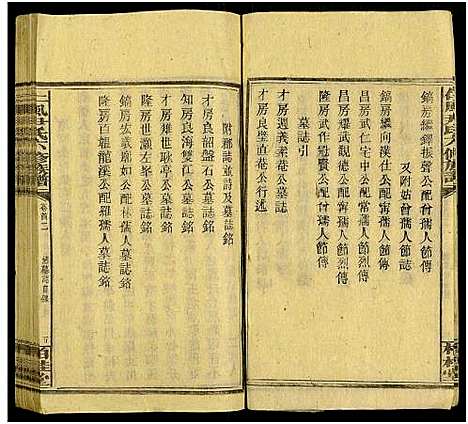 鎬房繼鐸振聲公配付孺人節傳
又附姑曾孺人節誌
鎬房繼向漢仕公配甯孺人節傳
昌房武仁宅中公配甯孺人節烈傳
昌房武耀武觀德公配甯孺人節烈傳
隆房武作公配曾孺人節傳
墓誌
才房週義素菴公墓誌
才房良璧直菴公行述
附鄒誌並詩及墓誌銘
才房良韶盤石公墓誌銘
知房良海雙江公墓誌銘
才房雉世耿亭公墓誌銘
隆房世灝左峯公墓誌銘
鎬房宏羲廓如公配林孺人墓誌銘
隆房百福龍溪公配羅孺人墓誌銘
尹氏六修族譜
卷首二
墓誌目錄
五
柏桂堂